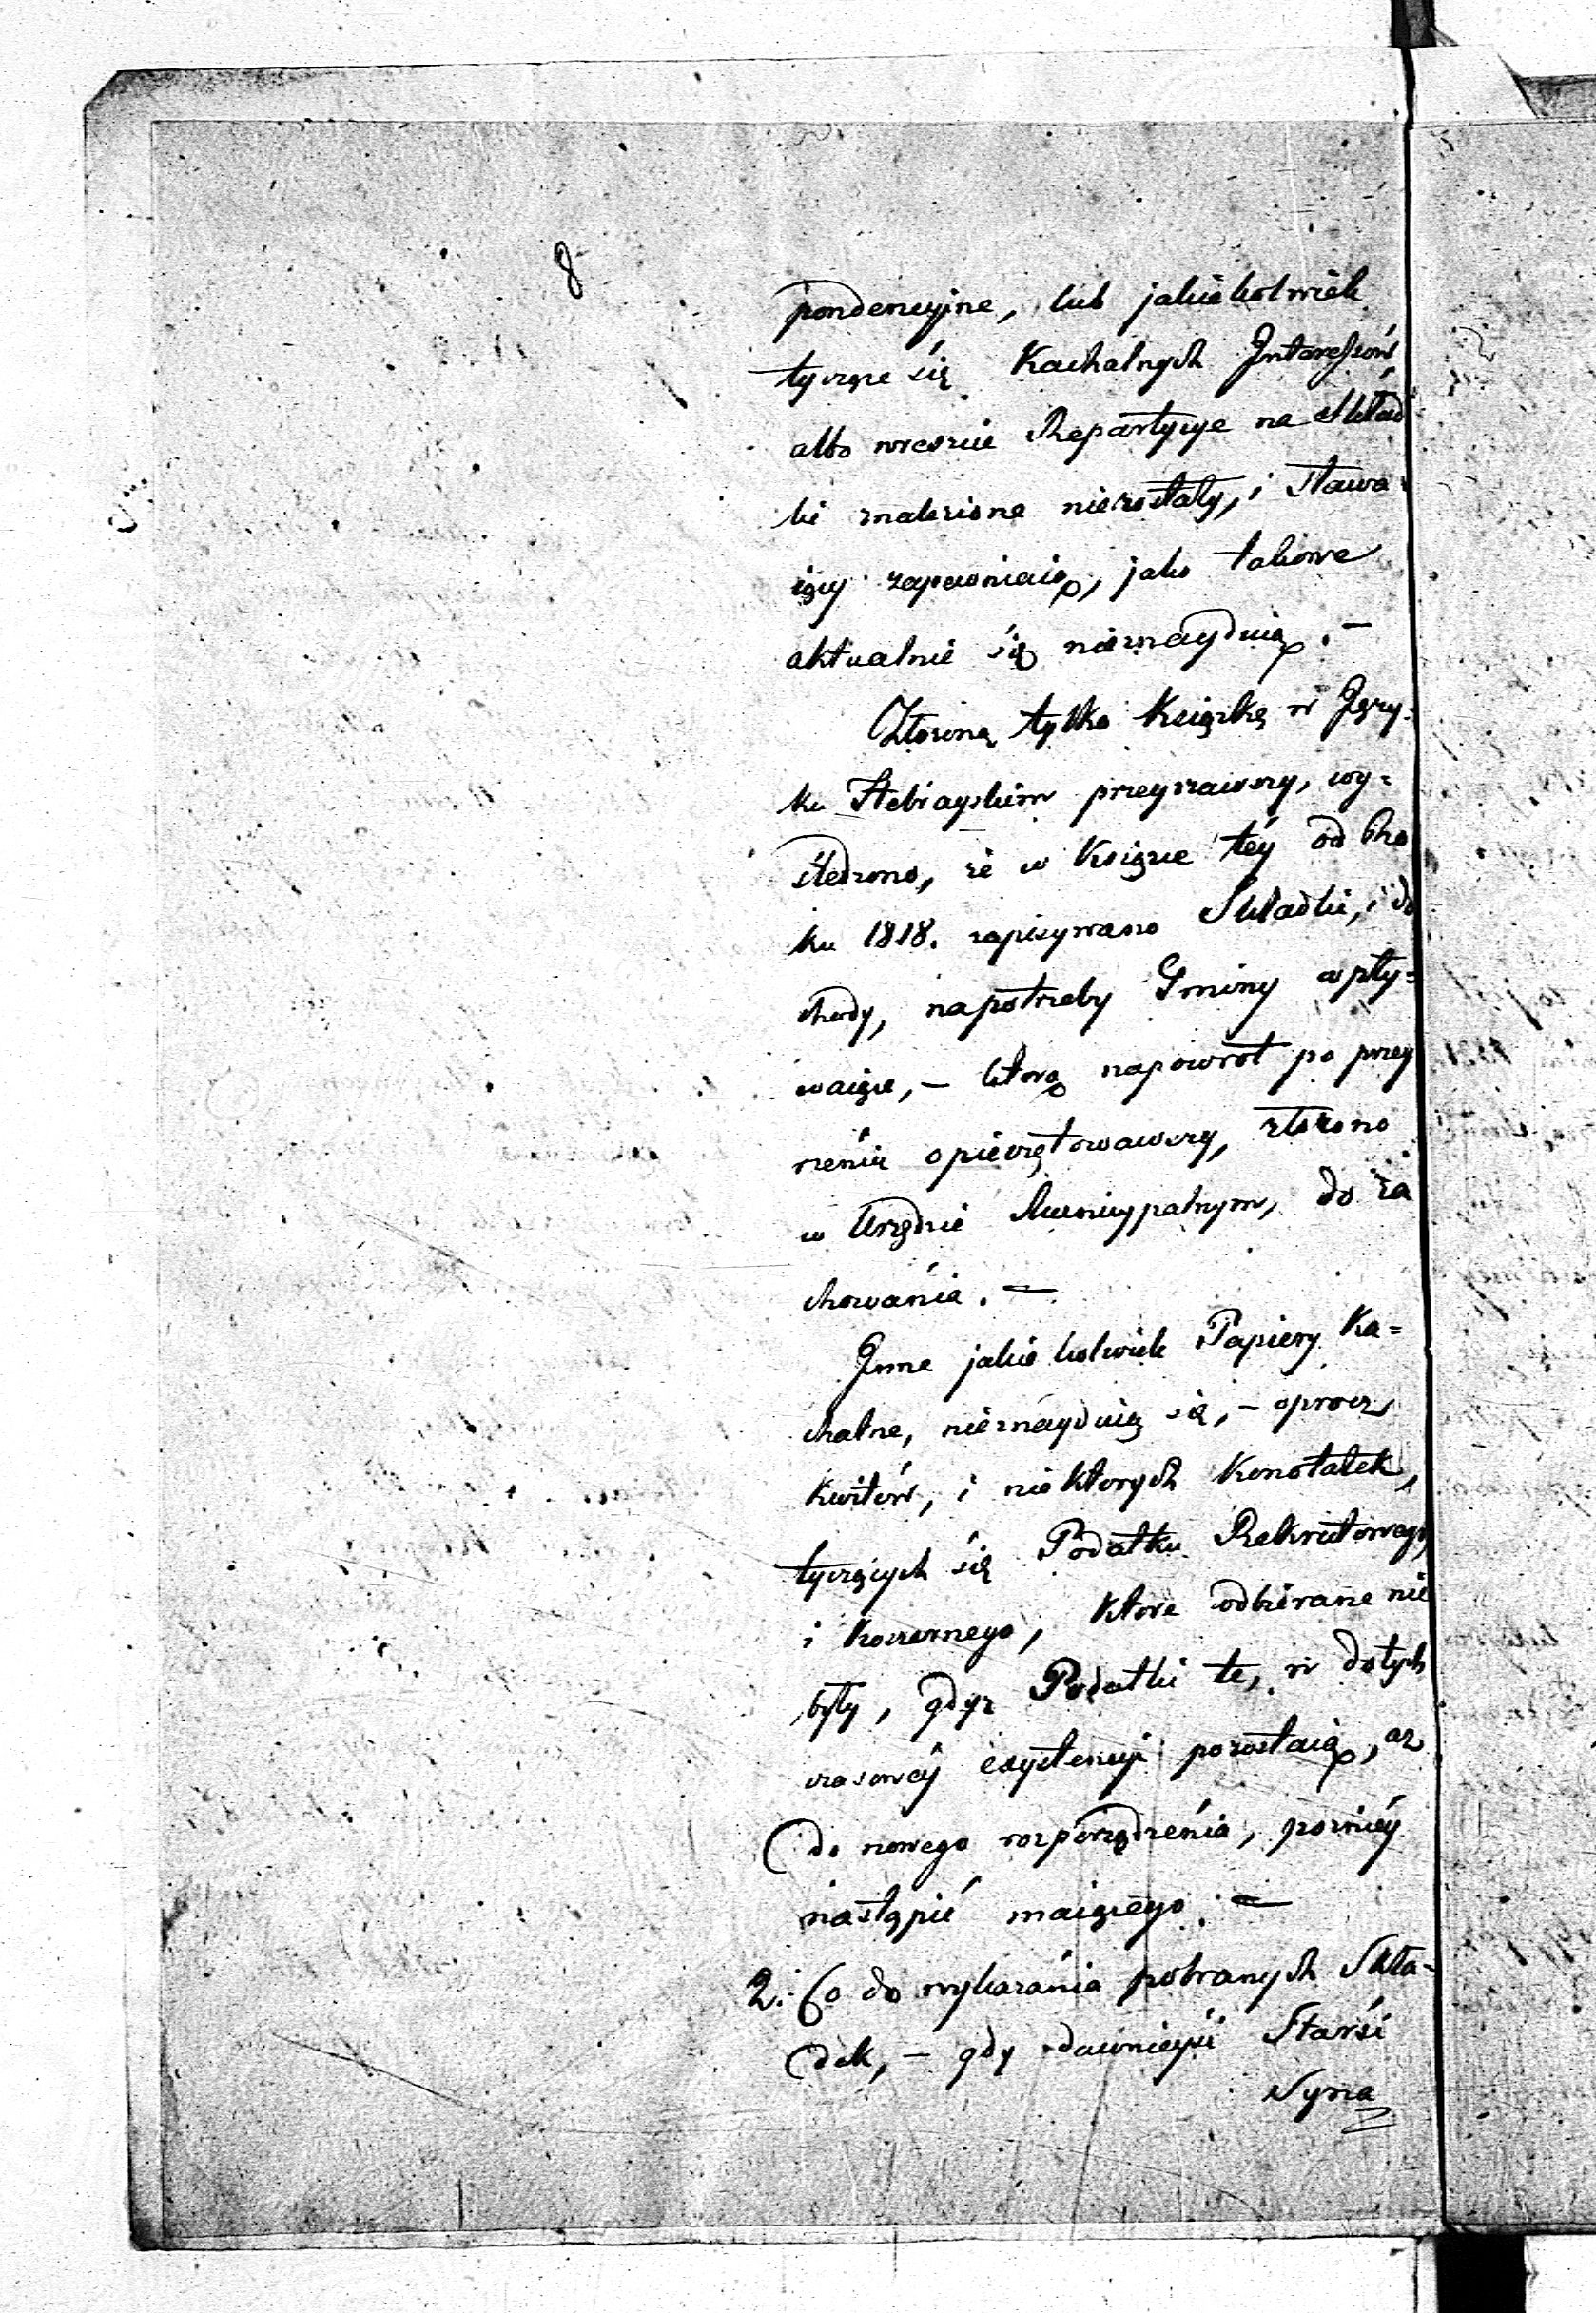 8
pondencyine, lub jakiekolwiek
tyczące się Kachalnych Interessów
albo wreszcie Repartycye na Skład
ki znalezione niezostały, i Stawa-
iący zapewniaią, jako takowe
aktualnie się nieznayduią. —
Złożoną tylko Książkę w Języ-
ku Hebrayskim przeyrzawszy, wy=
śledzono, że w Książce téy od Ro
ku 1818. zapisywano Składki, i do
chody, na potrzeby Gminy wpły=
waiące, — którą napowrót po przey
rzeniu opieczętowawszy, złożono
w Urzędzie Municypalnym, do za
chowania. —
Inne jakie kolwiek Papiery Ka=
chalne, nieznayduią się, — oprocz
Kwitów, i niektorych Konotatek,
tyczących się Podatku Rekrutowego,
i Koszernego, które odbierane nie
były, gdyż Podatki te, w dotych
czasowéy exystencyi pozostaią, az
do nowego rozporządzenia, pozniéy
nastąpić maiącego. —
2. Co do wykazania pobranych Skła-
dek, — gdy dawnieysi Starsi
Nyna